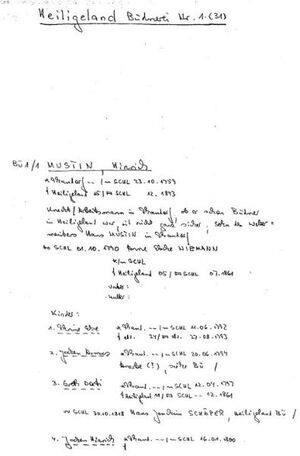 Heiligeland Büdnerei Nr. 1. (31)
BÜ1/1 MUSTIN, Hinrich
*Strandorf -- /~ SCHL 23.10.1759
† Heiligeland 05/ SCHL 12. 1893
Knecht/Arbeitsmann in Strandorf, ob er schon Büdner
in Heiligeland war, ist nicht ganz sicher, Sohn des Weber=
meisters Hans MUSTIN in Strandorf
∞ SCHL 01.10.1790 Anna Sofie NIEMANN
*/~ SCHL
† Heiligeland 05/ SCHL 07.1861
Vater:
Mutter:
Kinder:
1. *Strand. --/~ SCHL 11.06.1792
† do. 24/ do. 27.08.1793
2. Jochen *Strand. --/~ SCHL 20.06.1794
(?), siehe BÜ /
3. *Strand. --/~ SCHL 12.04.1797
† Heiligeland 11/ SCHL -- 12.1861
∞ SCHL 30.10.1818 Hans Joachim SCHÄPER, Heiligeland BÜ /
4. Jochen Hinrich *Strand. --/~ SCHL 16.01.1800